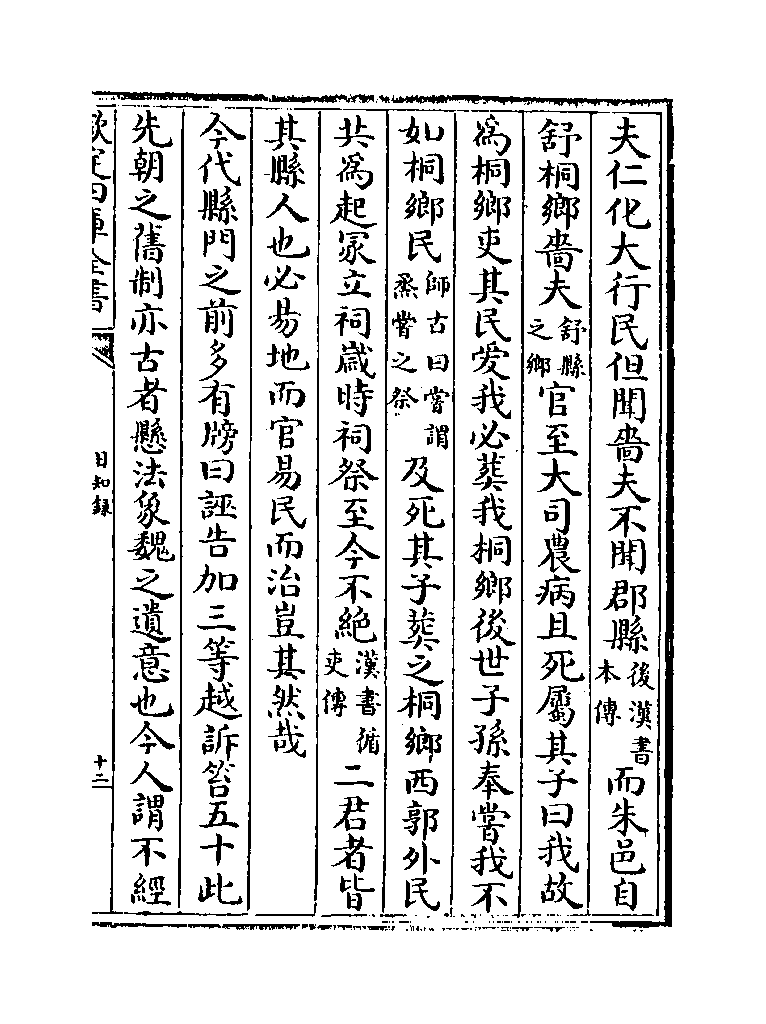 夫仁化大行民但聞嗇夫不聞郡縣後漢書本傳而朱邑自
舒桐鄉嗇夫舒縣之鄉官至大司農病且死屬其子曰我故
爲桐鄉吏其民愛我必葬我桐鄉後世子孫奉嘗我不
如桐鄉民師古曰嘗謂烝嘗之祭及死其子葬之桐鄉西郭外民
共爲起冢立祠歲時祠祭至今不絶漢書循吏傳二君者皆
其縣人也必易地而官易民而治豈其然哉
今代縣門之前多有牓曰誣告加三等越訴笞五十此
先朝之舊制亦古者懸法象魏之遺意也今人謂不經
欽定四庫全書
日知録
十二